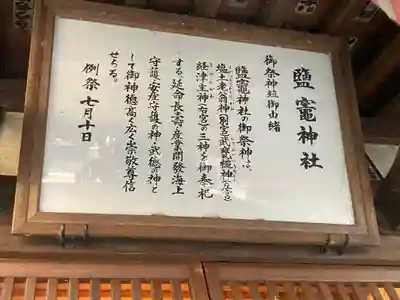 鹽竈神社
御祭神並御由緒
鹽竈神社の御祭神は、
塩土老翁神(別宮)武甕槌神(左宮)
経津主神(右宮)の三神を御奉祀
する、延命長寿、産業開発、海上
守護、安産守護の神、武徳の神と
して御神徳高く広く崇敬尊信
せらる。
例祭 七月十日